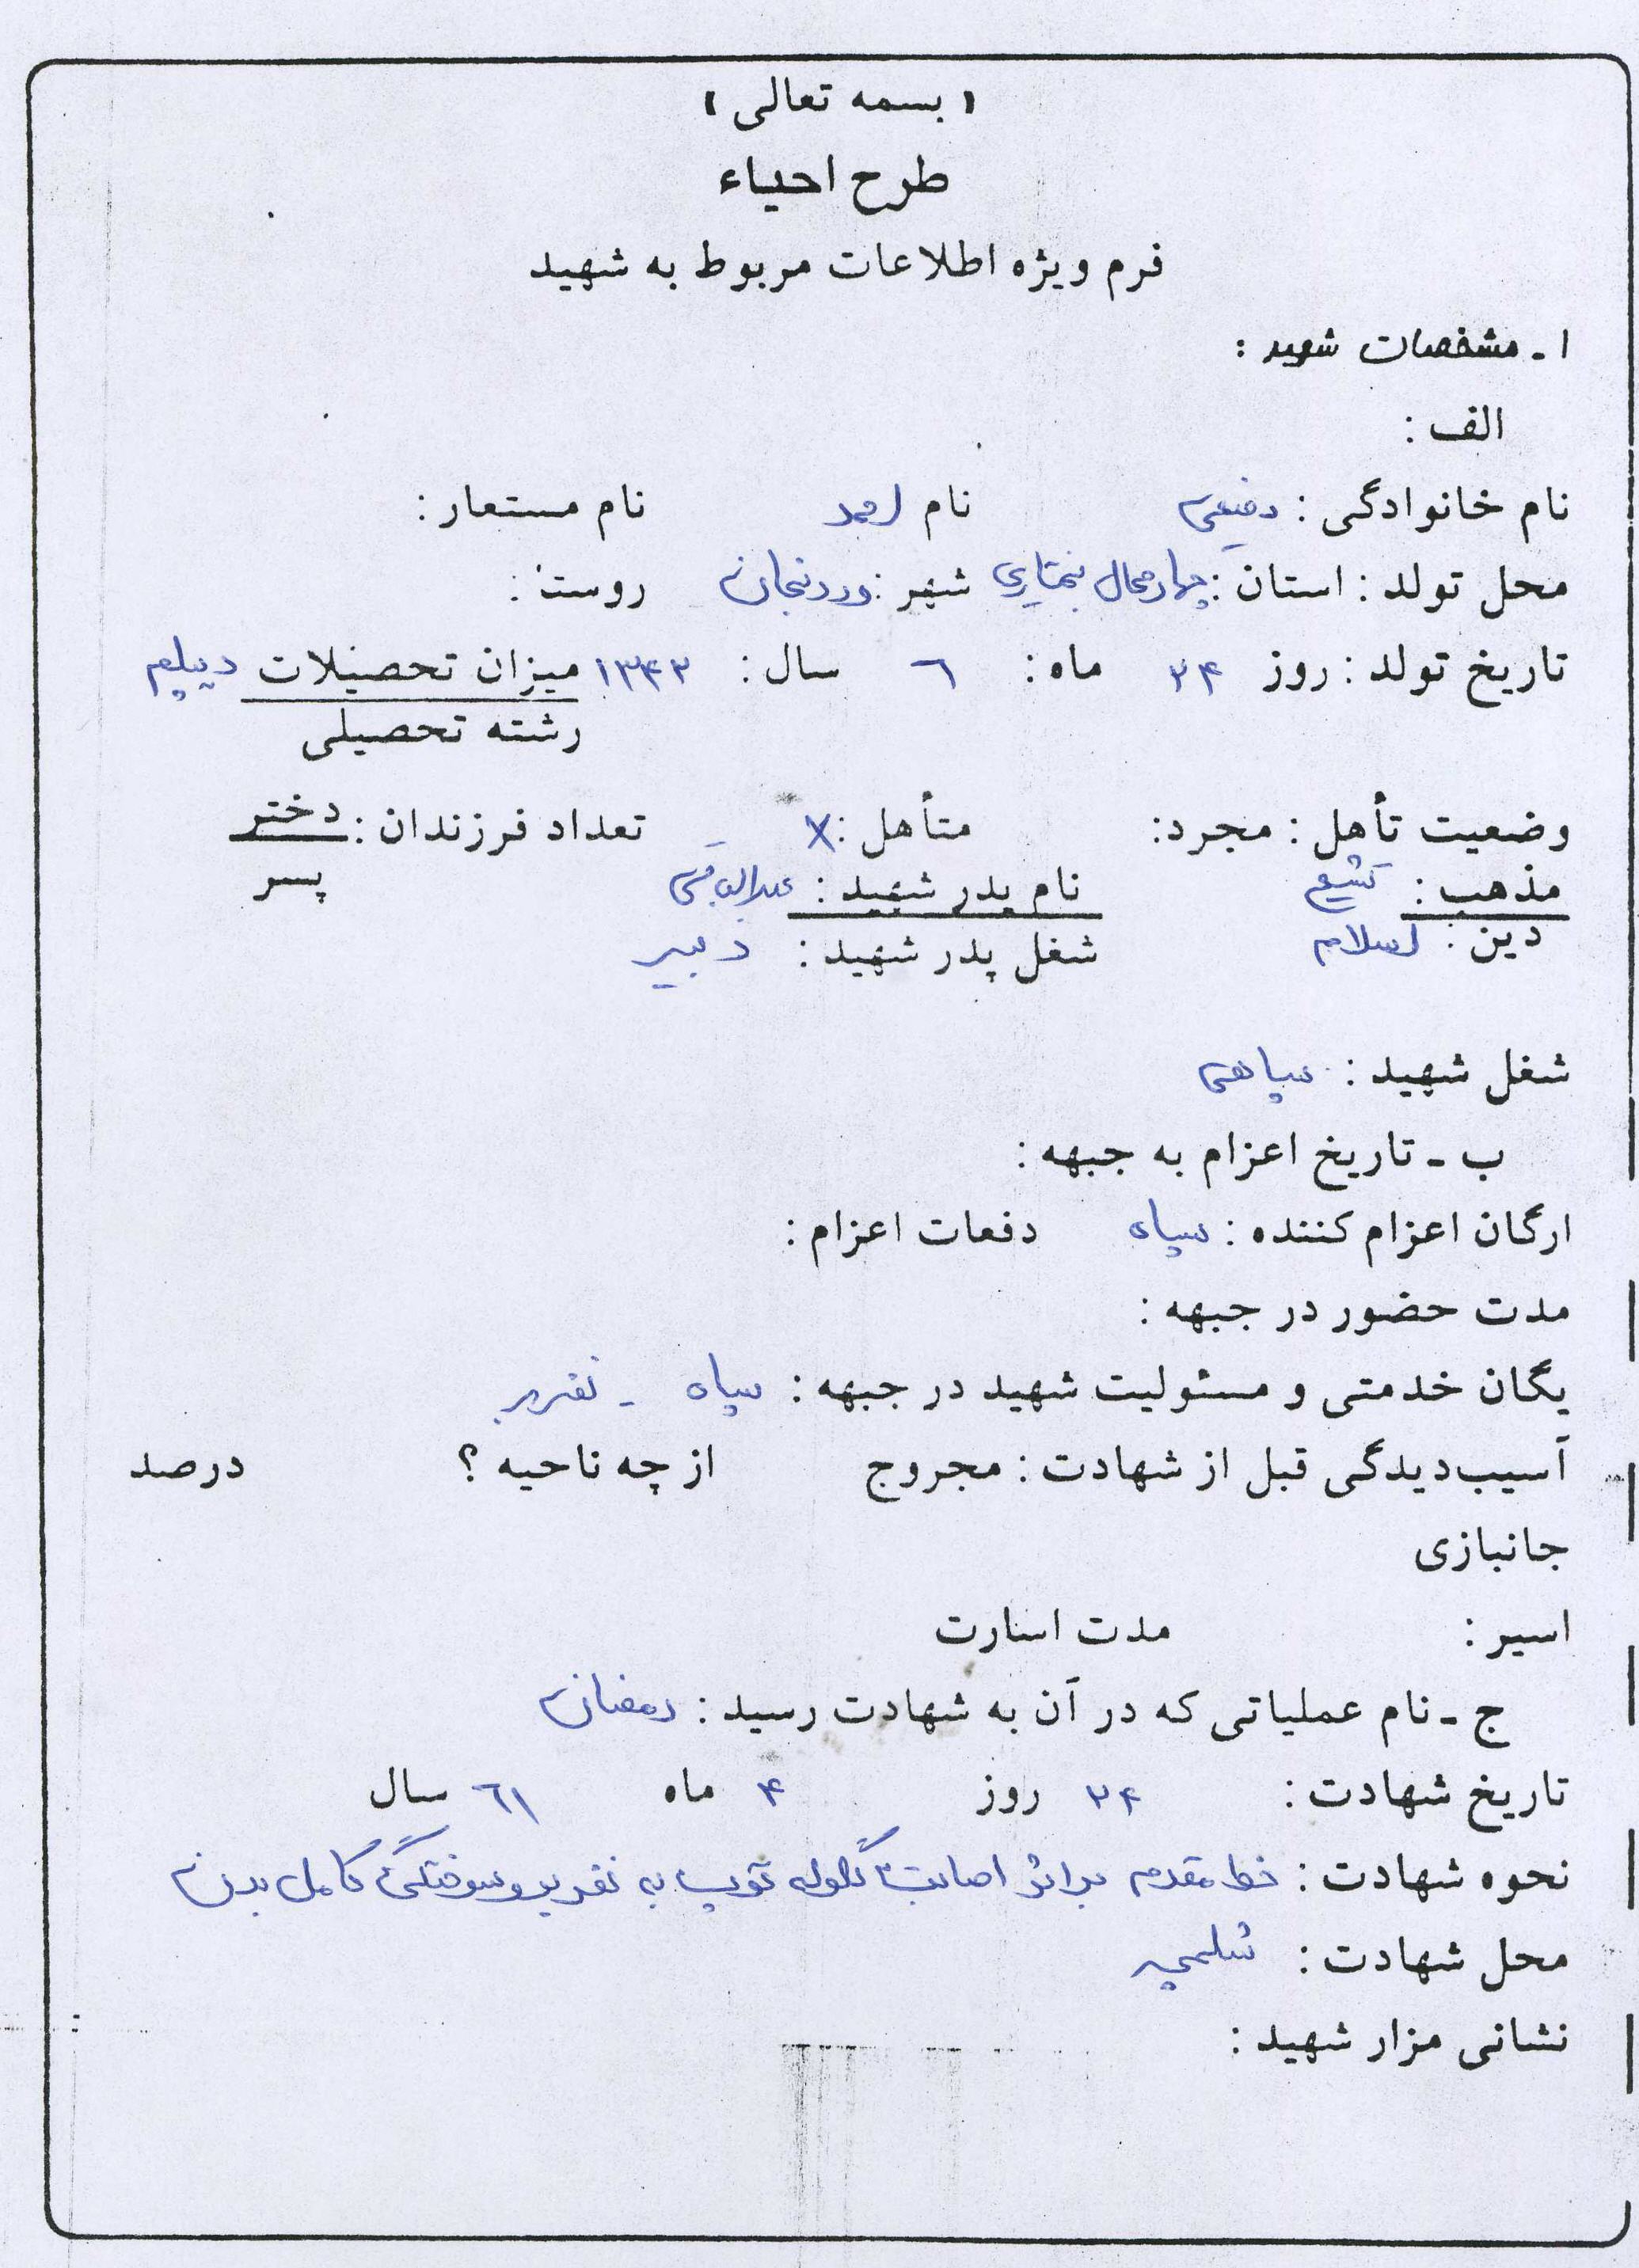 « بسمه تعالی »
طرح احیاء
فرم ویژه اطلاعات مربوط به شهید
۱ ـ مشخصات شهید :
الف :
نام خانوادگی : رفیعی نام احمد نام مستعار :
محل تولد : استان : چهارمحال بختیاری شهر : وردنجان روستا :
تاریخ تولد : روز ۲۴ ماه : ٦ سال : ۱۳۴۲ میزان تحصیلات دیپلم
رشته تحصیلی
وضعیت تأهل : مجرد : متأهل : X تعداد فرزندان : دختر
مذهب : تشیع نام پدر شهید : پسر
دین : اسلام شغل پدر شهید : دبیر
شغل شهید : سپاهی
ب ـ تاریخ اعزام به جبهه :
ارگان اعزام کننده : سپاه دفعات اعزام :
مدت حضور در جبهه :
یگان خدمتی و مسئولیت شهید در جبهه : سپاه ـ نفربر
آسیب‌دیدگی قبل از شهادت : مجروح از چه ناحیه ؟ درصد
جانبازی
اسیر : مدت اسارت
ج ـ نام عملیاتی که در آن به شهادت رسید : رمضان
تاریخ شهادت : ۲۴ روز ۴ ماه ٦۱ سال
نحوه شهادت : خط مقدم براثر اصابت گلوله توپ به نفربر و سوختگی کامل بدن
محل شهادت : شلمچه
نشانی مزار شهید :